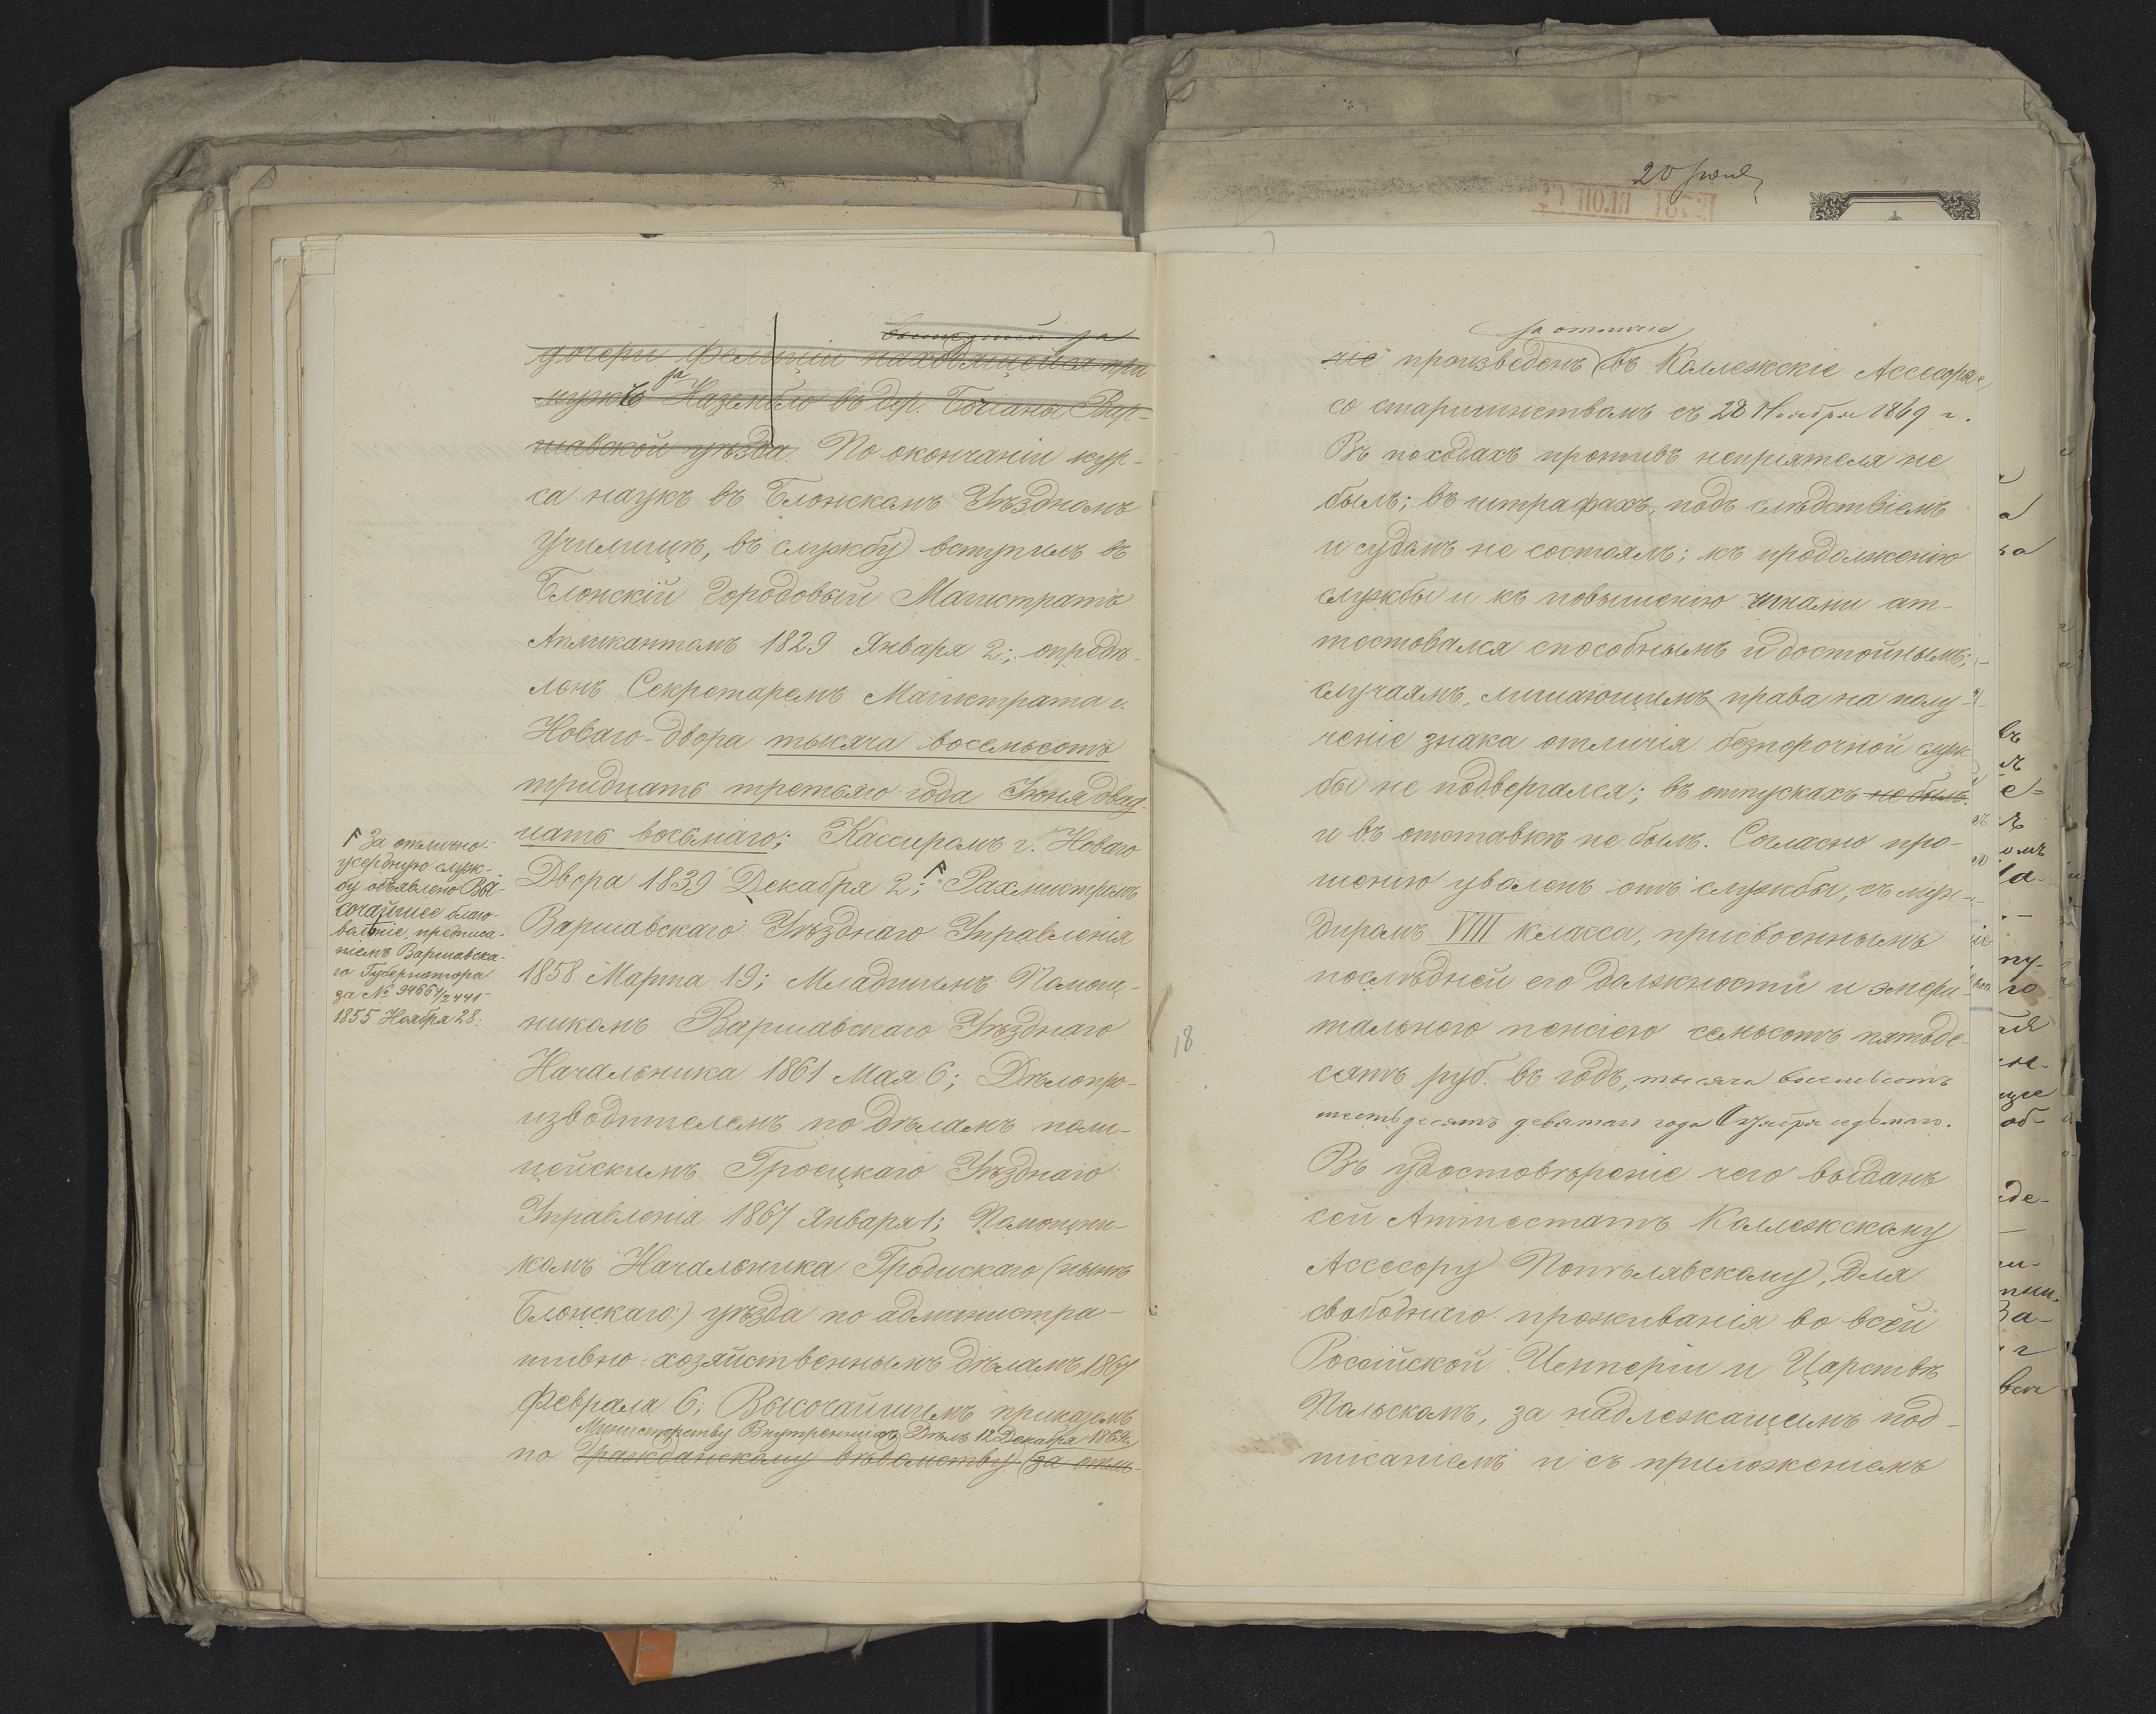 вышедшей за
дочери Фелиціи находящейся при
мужѣ за Назембло въ дер. Бочаны Вар-
шавской уѣзда. По окончаніи кур-
са наукъ въ Блонскомъ Уѣздномъ
Училищѣ, въ службу вступилъ въ
Блонскій Городовый Магистратъ
Апликантомъ 1829 Января 2; опредѣ-
ленъ Секретаремъ Магистрата г.
Новаго-Двора тысяча восемьсотъ
тридцать третьяго года Іюня двад-
цать восьмаго; Кассиромъ г. Новаго
Двора 1839 Декабря 2; Рахмистромъ
Варшавскаго Уѣзднаго Управленія
1858 Марта 19; Младшимъ Помощ-
никомъ Варшавскаго Уѣзднаго
Начальника 1861 Мая 6; Дѣлопро-
изводителемъ по дѣламъ поли-
цейскимъ Гроецкаго Уѣзднаго
Управленія 1867 Января 1; Помощни-
комъ Начальника Гродискаго (нынѣ
Блонскаго) уѣзда по администра-
тивно-хозяйственнымъ дѣламъ 1867
Февраля 6; Высочайшимъ приказомъ
Министерству Внутреннихъ Дѣлъ 12 Декабря 1869 г.
по Гражданскому вѣдомству (за отли-
Г За отлично-
усердную служ-
бу объявлено Вы-
сочайшее благо-
воленіе, предписа-
ніемъ Варшавска-
го Губернатора
за № 94664/2441
1855 Ноября 28.
20
за отличіе
чіе произведенъ въ Коллежскіе Ассесоры,
со старшинствомъ съ 28 Ноября 1869 г.
Въ походахъ противъ непріятеля не
былъ; въ штрафахъ, подъ слѣдствіемъ
и судомъ не состоялъ; къ продолженію
службы и къ повышенію чинами ат-
тестовался способнымъ и достойнымъ;
случаямъ, лишающимъ права на полу-
ченіе знака отличія безпорочной служ-
бы не подвергался; въ отпускахъ не былъ.
и въ отставкѣ не былъ. Согласно про-
шенію уволенъ отъ службы, съ мун-
диромъ VIII класса, присвоеннымъ
послѣдней его должности и эмери-
тальною пенсіею семьсотъ пятьде-
сятъ руб. въ годъ, тысяча восемьсотъ
шестьдесятъ девятаго года Октября седьмаго.
Въ удостовѣреніе чего выданъ
сей Аттестатъ Коллежскому
Ассесору Попѣлявскому, для
свободнаго проживанія во всей
Россійской Имперіи и Царствѣ
Польскомъ, за надлежащимъ под-
писаніемъ и съ приложеніемъ
18